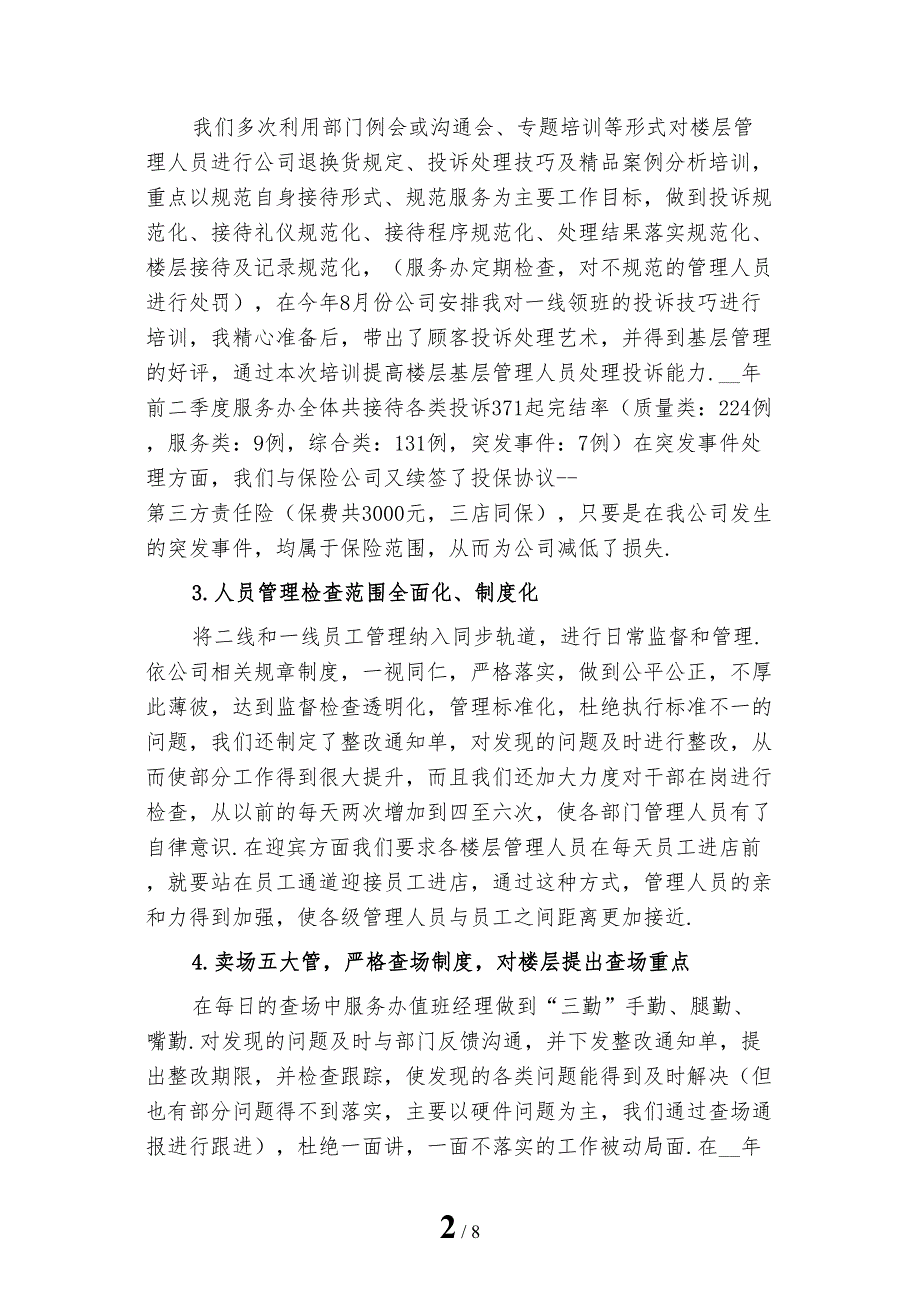 我们多次利用部门例会或沟通会、专题培训等形式对楼层管
理人员进行公司退换货规定、投诉处理技巧及精品案例分析培训，
重点以规范自身接待形式、规范服务为主要工作目标，做到投诉规
范化、接待礼仪规范化、接待程序规范化、处理结果落实规范化、
楼层接待及记录规范化，（服务办定期检查，对不规范的管理人员
进行处罚），在今年8月份公司安排我对一线领班的投诉技巧进行
培训，我精心准备后，带出了顾客投诉处理艺术，并得到基层管理
的好评，通过本次培训提高楼层基层管理人员处理投诉能力.__年
前二季度服务办全体共接待各类投诉371起完结率（质量类：224例
，服务类：9例，综合类：131例，突发事件：7例）在突发事件处
理方面，我们与保险公司又续签了投保协议--
第三方责任险（保费共3000元，三店同保），只要是在我公司发生
的突发事件，均属于保险范围，从而为公司减低了损失.
3.人员管理检查范围全面化、制度化
将二线和一线员工管理纳入同步轨道，进行日常监督和管理.
依公司相关规章制度，一视同仁，严格落实，做到公平公正，不厚
此薄彼，达到监督检查透明化，管理标准化，杜绝执行标准不一的
问题，我们还制定了整改通知单，对发现的问题及时进行整改，从
而使部分工作得到很大提升，而且我们还加大力度对干部在岗进行
检查，从以前的每天两次增加到四至六次，使各部门管理人员有了
自律意识.在迎宾方面我们要求各楼层管理人员在每天员工进店前
，就要站在员工通道迎接员工进店，通过这种方式，管理人员的亲
和力得到加强，使各级管理人员与员工之间距离更加接近.
4.卖场五大管，严格查场制度，对楼层提出查场重点
在每日的查场中服务办值班经理做到“三勤”手勤、腿勤、
嘴勤.对发现的问题及时与部门反馈沟通，并下发整改通知单，提
出整改期限，并检查跟踪，使发现的各类问题能得到及时解决（但
也有部分问题得不到落实，主要以硬件问题为主，我们通过查场通
报进行跟进），杜绝一面讲，一面不落实的工作被动局面.在__年
2 / 8